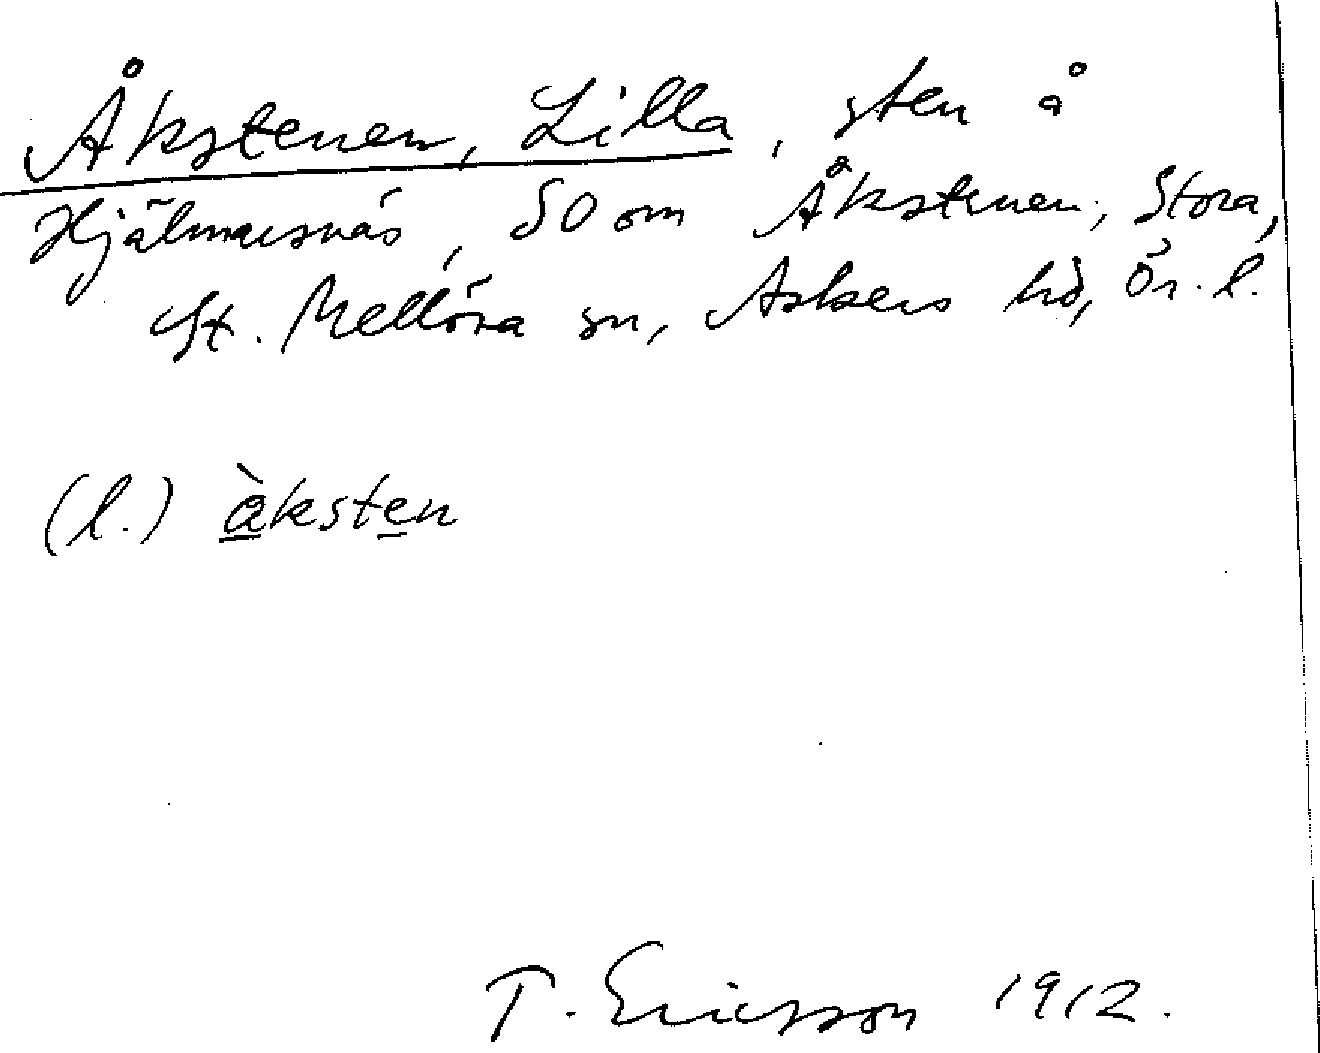 Åkstenen, Lilla, sten å
Hjälmarsnäs, SO om Åkstenen, Stora,
St. Mellösa sn, Askers hd, Ör. l.
(l.) àksten
T. Ericsson 1912.